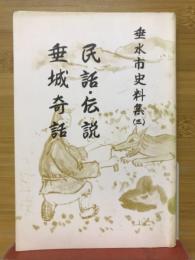 垂水市史料集(三)
民話・伝説
垂城奇話